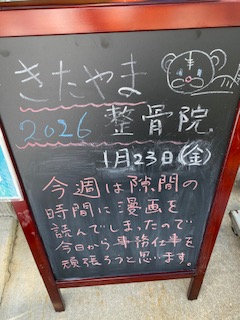 きたやま
2026 整骨院
1月23日(金)
今週は隙間の
時間に漫画を
読んでしまったので
今日から事務仕事を
頑張ろうと思います。